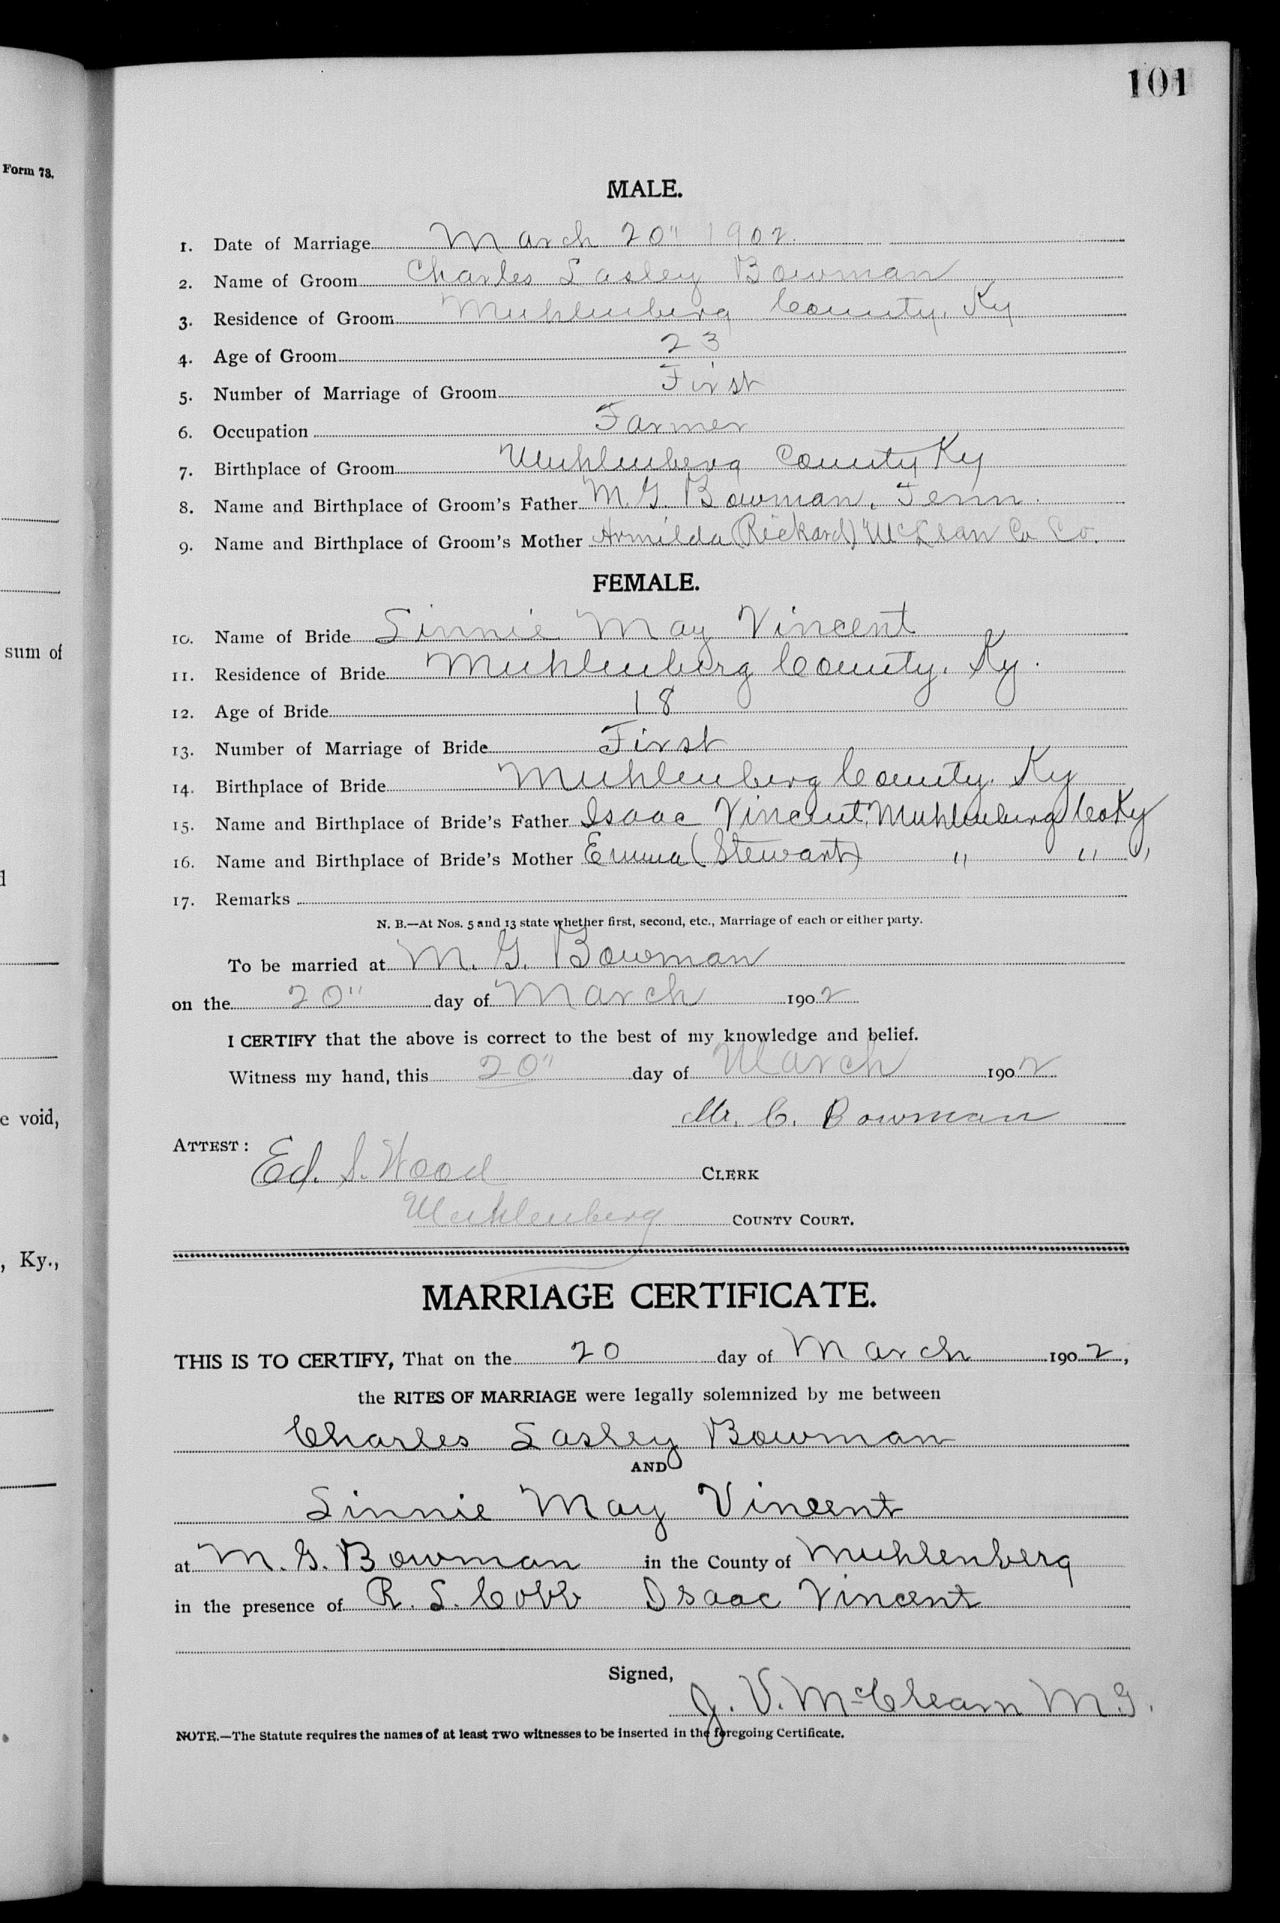 101
Form 73.
MALE.
1. Date of Marriage March 20" 1902.
2. Name of Groom Charles Lasley Bowman
3. Residence of Groom Muhlenberg County, Ky
4. Age of Groom 23
5. Number of Marriage of Groom First
6. Occupation Farmer
7. Birthplace of Groom Muhlenberg County Ky
8. Name and Birthplace of Groom's Father M. G. Bowman, Tenn.
9. Name and Birthplace of Groom's Mother Armilda (Rickard) McLean Co Co.
FEMALE.
10. Name of Bride Linnie May Vincent
sum of
11. Residence of Bride Muhlenberg County, Ky.
12. Age of Bride 18
13. Number of Marriage of Bride First
14. Birthplace of Bride Muhlenberg County. Ky
15. Name and Birthplace of Bride's Father Isaac Vincent, Muhlenberg Co Ky
16. Name and Birthplace of Bride's Mother Emma (Stewart) " " "
17. Remarks
N. B.—At Nos. 5 and 13 state whether first, second, etc., Marriage of each or either party.
To be married at M. G. Bowman
on the 20" day of March 1902
I CERTIFY that the above is correct to the best of my knowledge and belief.
Witness my hand, this 20" day of March 1902
Mr. C. Bowman
e void,
ATTEST:
Ed. S. Wood CLERK
Muhlenberg COUNTY COURT.
, Ky.,
MARRIAGE CERTIFICATE.
THIS IS TO CERTIFY, That on the 20 day of March 1902,
the RITES OF MARRIAGE were legally solemnized by me between
Charles Lasley Bowman
AND
Linnie May Vincent
at M. G. Bowman in the County of Muhlenberg
in the presence of R. L. Cobb Isaac Vincent
Signed,
J. V. McClearn M.G.
NOTE.—The Statute requires the names of at least TWO witnesses to be inserted in the foregoing Certificate.